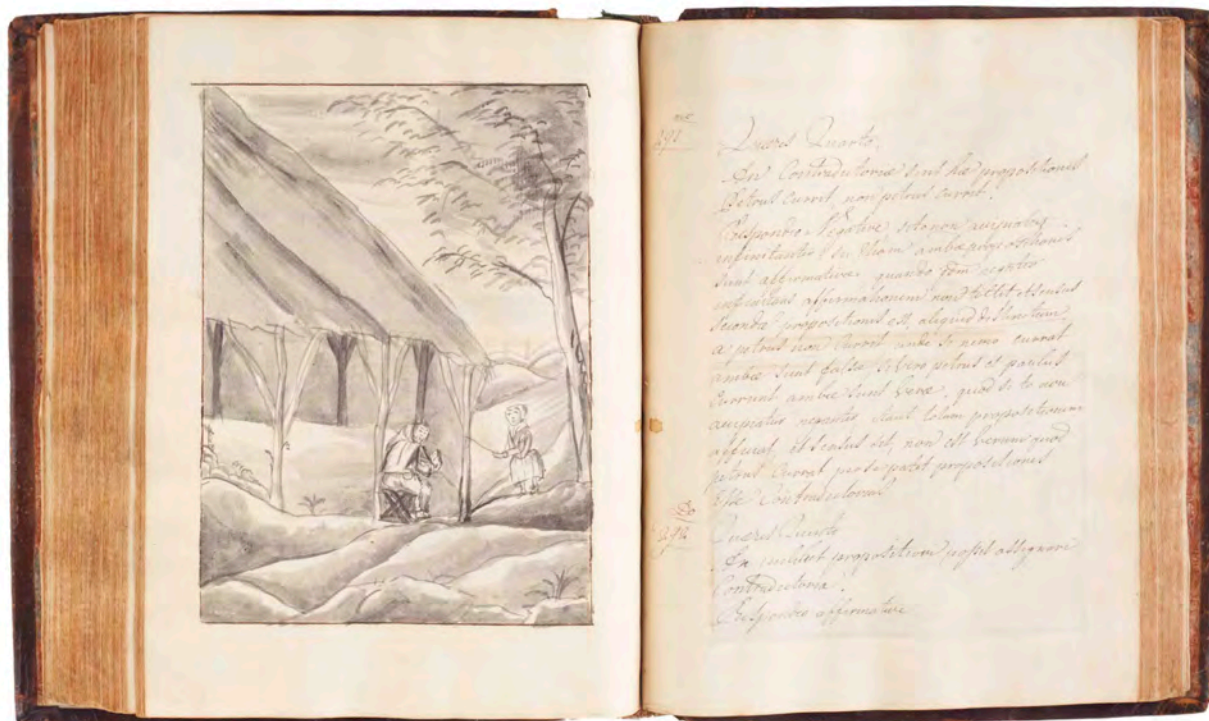 291
Quæres Quarto.
An Contradictoriæ sint hæ propositiones
Petrus Currit, non petrus currit.
Respondeo Negative, si to non accipiatur
infinitanter,
sunt affirmativæ, quando
affirmationem non tollit et sensus
secundæ propositionis est, aliquid distinctum
a petro non Currit unde si nemo currat
ambæ sunt falsæ si vero petrus et paulus
Currunt ambæ sunt veræ, quod si to non
accipiatur neganter, totam propositionem
afficiat, et sensus sit, non est verum quod
petrus Currat per se patet propositiones
Esse Contradictorias
292
Quæres Quinto
An cuilibet propositioni possit assignari
Contradictoria.
Respondeo affirmative